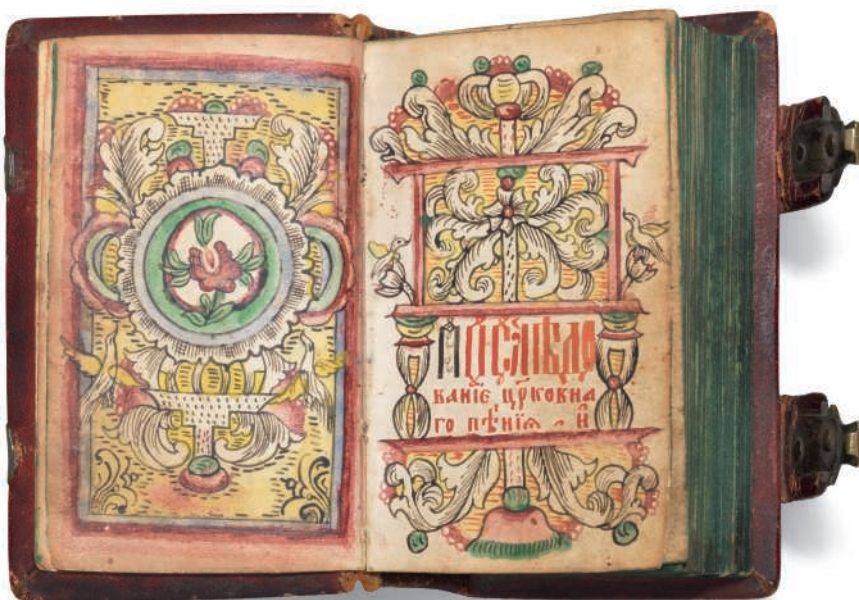 Послѣдо
ваніє цр҃ковна
го пѣнїѧ . и҆